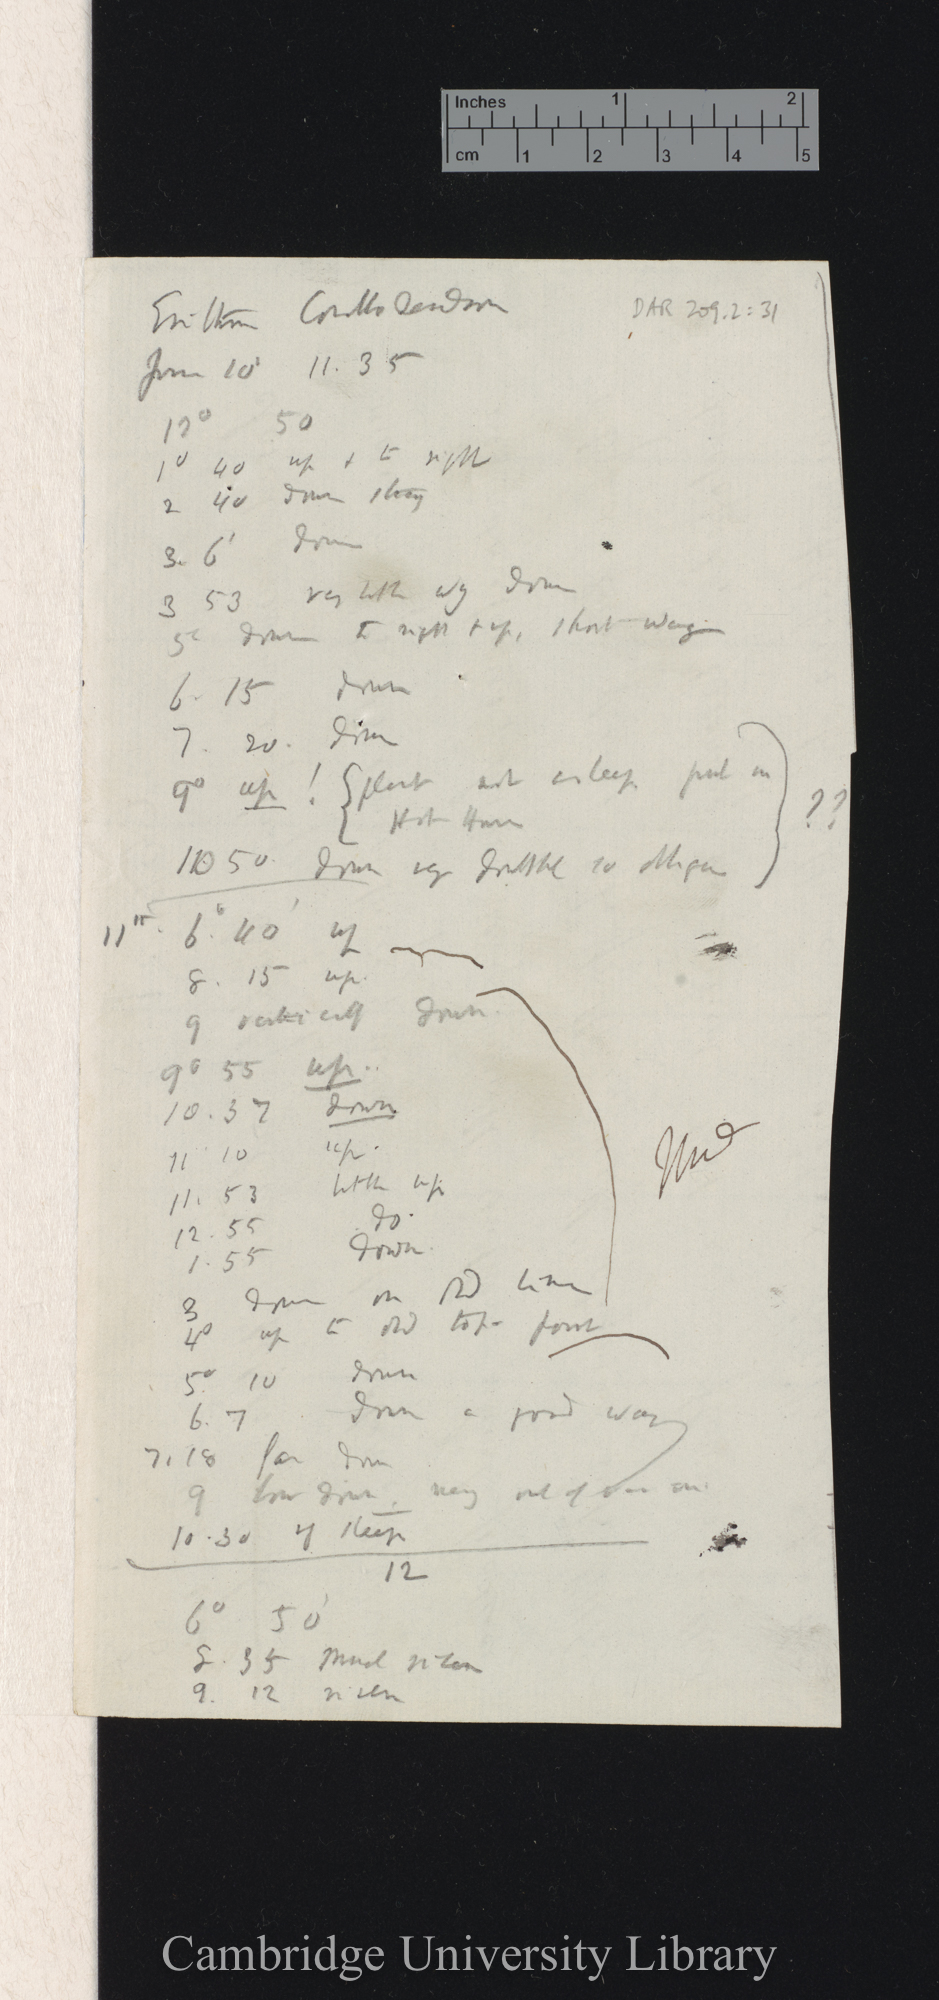 Inches 1 2
cm 1 2 3 4 5
Erythrina Corallodendron
DAR 209.2:31
June 10' 11.35
12° 50
1° 40 up & to right
2 40 down
3. 6' down
3 53 very little way down
5° down to right & up, short way
6. 15 down
7. 20. down
9° up! {plant not asleep put in
Hot House
??
10 50. down
11th. 6° 40' up
8. 15 up.
9 vertically down.
9° 55 up..
10.37 down
11 10 up.
11. 53 little up
12.55 do.
1.55 down.
3 down on old line
4° up to old top point
5° 10 down
6. 7 down a good way
7.18 far down
9 low down,
10.30 sleep
12
6° 50'
8.35 much risen
9. 12 risen
Cambridge University Library